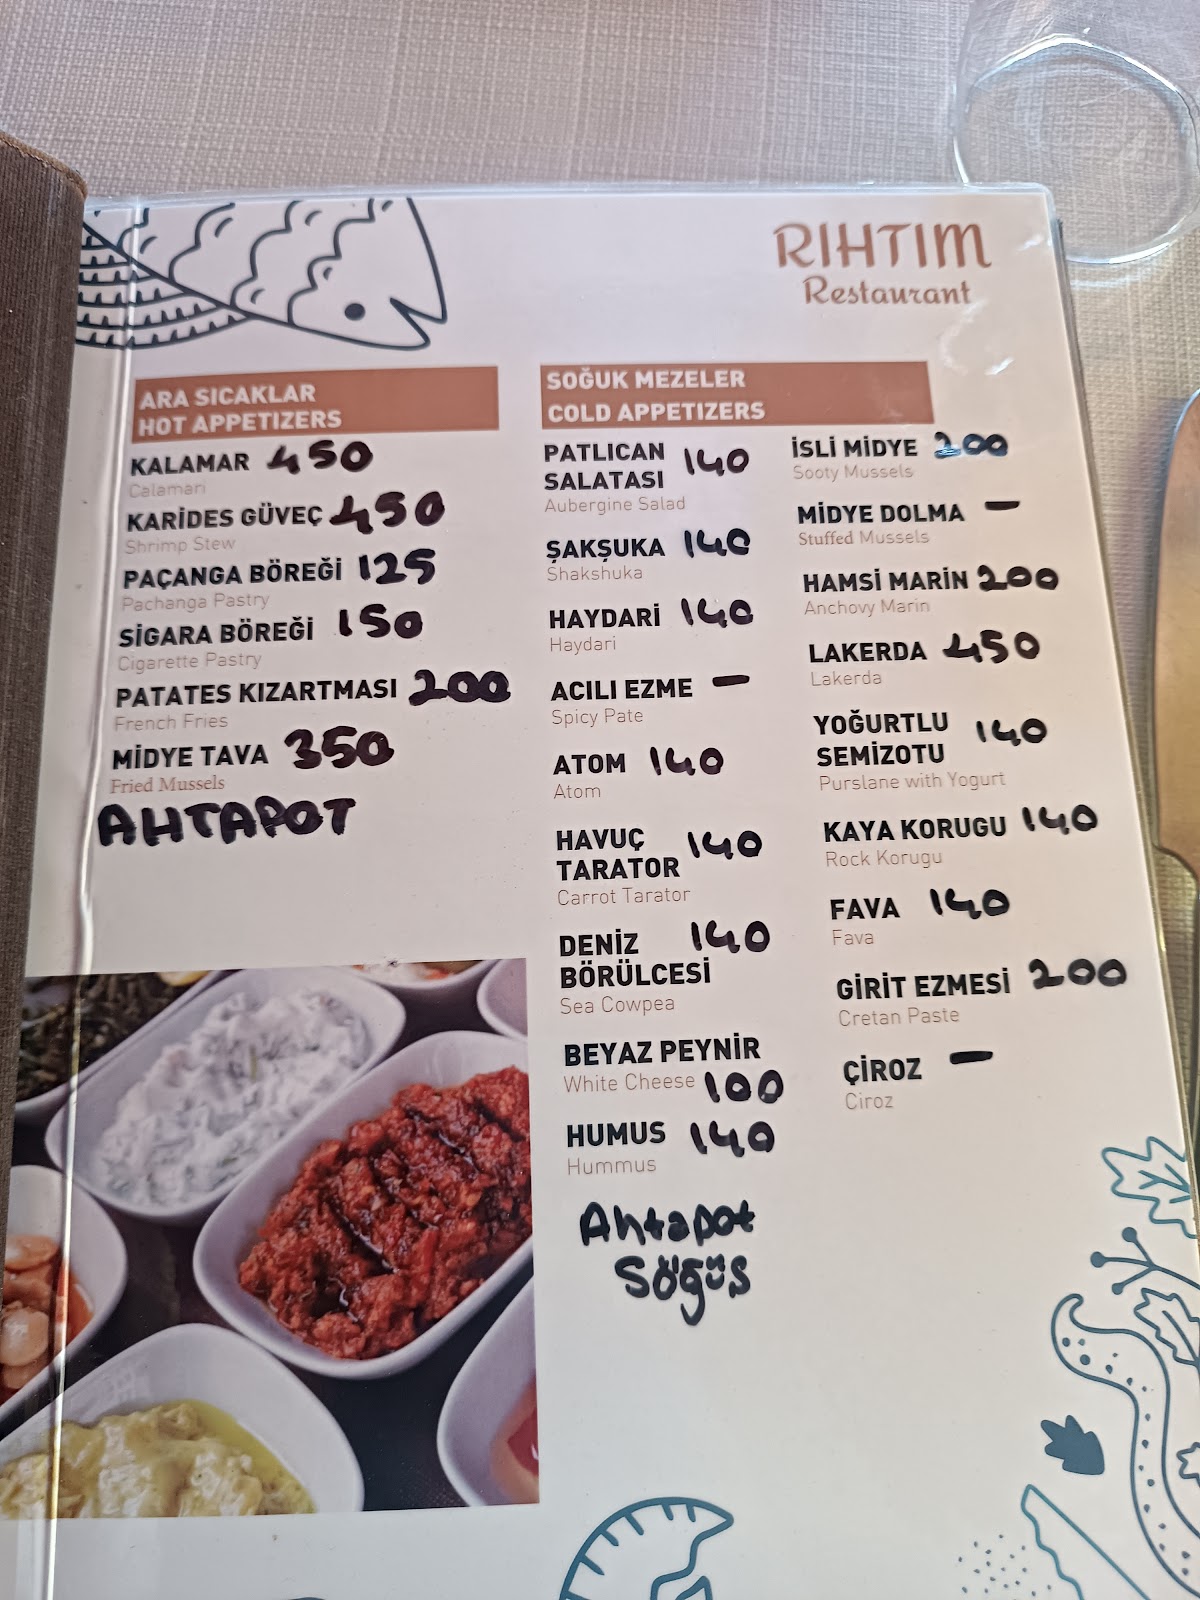 RIHTIM
Restaurant
ARA SICAKLAR
HOT APPETIZERS
KALAMAR 450
Calamari
KARİDES GÜVEÇ 450
Shrimp Stew
PAÇANGA BÖREĞİ 125
Pachanga Pastry
SİGARA BÖREĞİ 150
Cigarette Pastry
PATATES KIZARTMASI 200
French Fries
MİDYE TAVA 350
Fried Mussels
AHTAPOT
SOĞUK MEZELER
COLD APPETIZERS
PATLICAN
SALATASI 140
Aubergine Salad
ŞAKŞUKA 140
Shakshuka
HAYDARİ 140
Haydari
ACILI EZME -
Spicy Pate
ATOM 140
Atom
HAVUÇ
TARATOR 140
Carrot Tarator
DENİZ 140
BÖRÜLCESİ
Sea Cowpea
BEYAZ PEYNİR
White Cheese 100
HUMUS 140
Hummus
Ahtapot
Söğüş
İSLİ MİDYE 200
Sooty Mussels
MİDYE DOLMA -
Stuffed Mussels
HAMSİ MARİN 200
Anchovy Marin
LAKERDA 450
Lakerda
YOĞURTLU
SEMİZOTU 140
Purslane with Yogurt
KAYA KORUGU 140
Rock Korugu
FAVA 140
Fava
GİRİT EZMESİ 200
Cretan Paste
ÇİROZ -
Ciroz